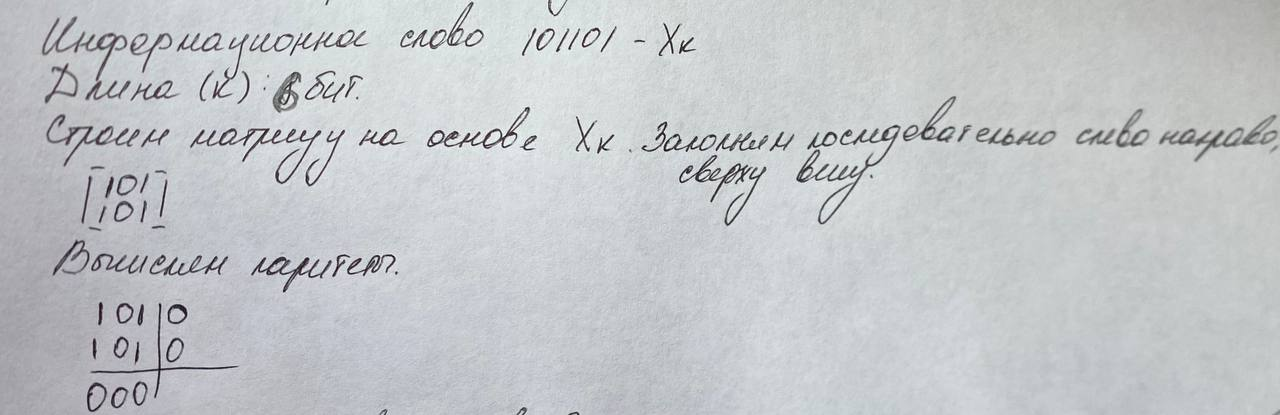 Информационное слово 101101 - Xк
Длина (к): 6 бит.
Строим матрицу на основе Xк. Заполняем последовательно слево направо,
сверху вниз.
[101
101]
Вычислям паритеты.
101|0
101|0
000|